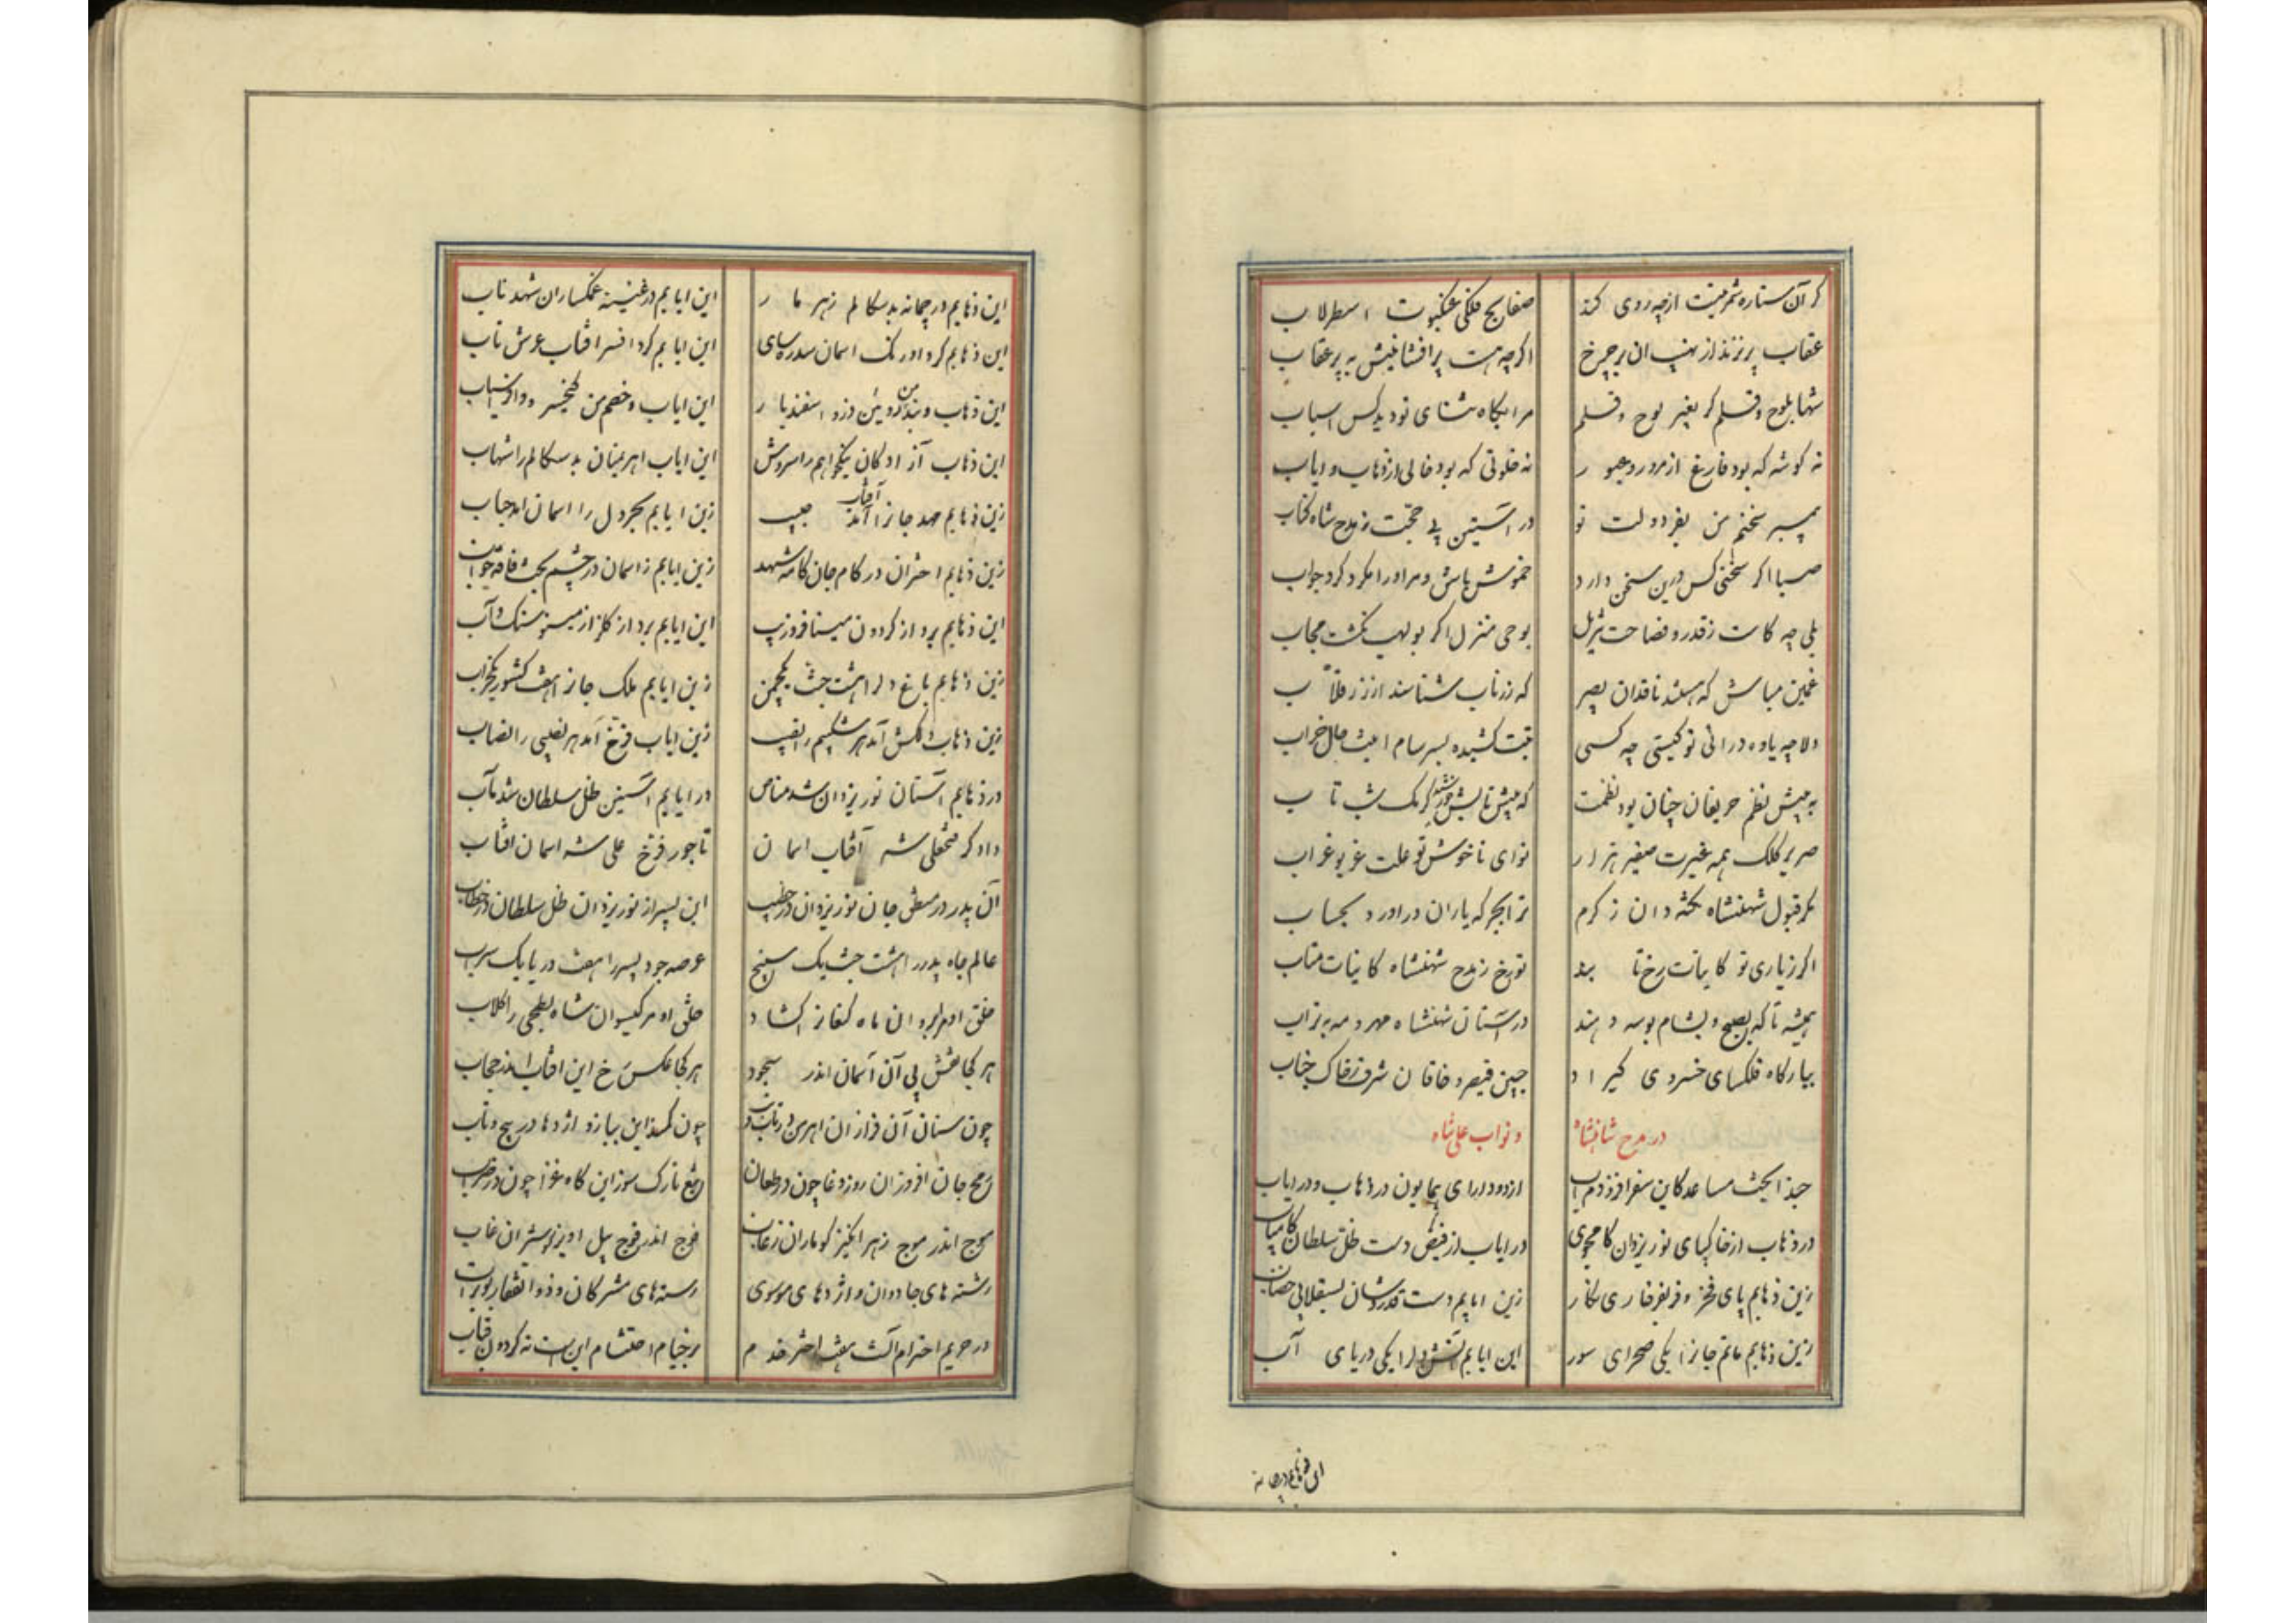 گر آن ستاره شمر نیست از چه روی کند صفایح فلکی عنکبوت اسطرلاب
عقاب پر نزند از نهیب آن بر چرخ اگرچه هست پرافشانیش به پر عقاب
شها بلوح و قلم گر بغیر لوح و قلم مرا بگاه ثنای تو دید کس اسباب
نه گوشه که بود فارغ از مرور و عبور نه خلوتی که بود خالی از ذهاب و ایاب
پیمبر سخنم من بفر دولت تو در آستین پی حجت ز مدح شاه کتاب
صبا اگر سخنی کس درین سخن دارد خموش باش و مر او را مکرد کرد جواب
بلی چه کاست ز قدر و فصاحت تنزیل بوحی منزل اگر بولهب نگشت مجاب
غمین مباش که هستند ناقدان بصیر که زر ناب شناسند از زر قلاب
دلا چه یاوه درائی تو کیستی چه کسی تبت کشیده بسرسام اینت حال خراب
به پیش نظم حریفان چنان بود نظمت که پیش تابش خورشید کرمک شب تاب
صریر کلک همه غیرت صفیر هزار نوای ناخوش تو علت غریو غراب
مگر قبول شهنشاه نکته دان ز کرم ترا بجرگه یاران درآورد بحساب
اگر ز یاری تو کاینات رخ تابد تو رخ ز مدح شهنشاه کاینات متاب
همیشه تا که بصبح و بشام بوسه دهند در آستان شهنشاه مهر و مه به تراب
ببارگاه فلکسای خسروی گیراد جبین قیصر و خاقان شرف ز خاک جناب
در مدح شاهنشاه و نواب علی شاه
حبذا بخت مساعد کاین سفر افزودم آب از دو دارای همایون در ذهاب و در ایاب
در ذهاب از خاکپای نور یزدان کامجوی در ایاب از فیض دست ظل سلطان کامیاب
زین ذهابم پای فخر و فر بفرق ری نگار زین ایابم دست قدر و شان بسقلابی خضاب
زین ذهابم ماتم جانرا یکی صحرای سور این ایابم آتش دل را یکی دریای آب
این ذهابم در چمانه
این ذهابم در چمانه بدسگالم زهر مار این ایابم در غنینه غمگساران شهد ناب
این ذهابم کرد اورنگ آسمان سدره سای این ایابم کرد افسر آفتاب عرش تاب
این ذهاب و بند من روئین دز و اسفندیار این ایاب و خصم من کیخسرو و افراسیاب
این ذهاب آزادگان نیکخواهم را سروش این ایاب اهرمنان بدسگالم را شهاب
زین ذهابم مهد جانرا آمد آفتاب جیب زین ایابم بحر دل را آسمان آمد حباب
زین ذهابم اختران در کام جان کامد شهد زین ایابم ز آسمان در چشم بخت فاقه خواب
این ذهابم برد از گردون مینا فر و زیب این ایابم برد از گلزار مینو سنگ و آب
زین ذهابم باغ دل را هشت جنت یکچمن زین ایابم ملک جانرا هفت کشور یکخراب
زین ذهاب دلکش آمد هر شکیبم را نقیب زین ایاب فرخ آمد هر نصیبی را نصاب
در ذهابم آستان نور یزدان شد مناص در ایابم آستین ظل سلطان شد مآب
دادگر فتحعلی شه آفتاب آسمان تاجور فرخ علی شه آسمان آفتاب
آن پدر در منطق جان نور یزدان در خطیب این پسر از نور یزدان ظل سلطان در خطاب
عالم جاه پدر را هشت جنت یک سپنج عرصه جود پسر را هفت دریا یک سراب
خلق او مر ابروان ماه کنعانرا گشاد خلق او مر گیسوان شاه بطحی را گلاب
هر کجا نقش پی آن آسمان اندر سجود هر کجا عکس رخ این آفتاب اندر حجاب
چون سنان آن فرازان اهرمن در تاب و تب چون کمند این ببازو اژدها در پیچ و تاب
رمح جان افروز آن روز وغا چون در طعان تیغ تارک سوز این گاه غزا چون در ضراب
موج اندر موج زهر انگیز کوماران فوج اندر فوج پیل اوبیز نو شیران غاب
رشته های جادوان و اژدهای موسوی رسته های مشرکان و ذوالفقار بوتراب
در حریم احترام آنست هفت اختر خدم بر خیام احتشام این است نه گردون قباب